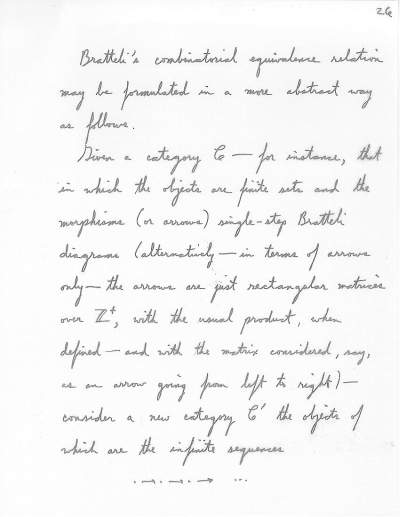 26
Bratteli's combinatorial equivalence relation
may be formulated in a more abstract way
as follows.
Given a category C — for instance, that
in which the objects are finite sets and the
morphisms (or arrows) single-step Bratteli
diagrams (alternatively — in terms of arrows
only — the arrows are just rectangular matrices
over ℤ⁺, with the usual product, when
defined — and with the matrix considered, say,
as an arrow going from left to right) —
consider a new category C' the objects of
which are the infinite sequences
· → · → · → ...